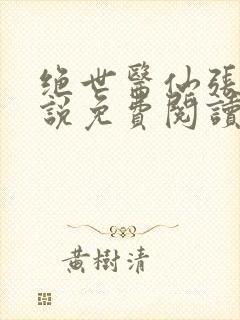 绝世醫仙張
説免費閱讀
黃樹清